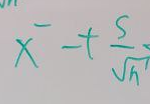 x̄ -t s/√n